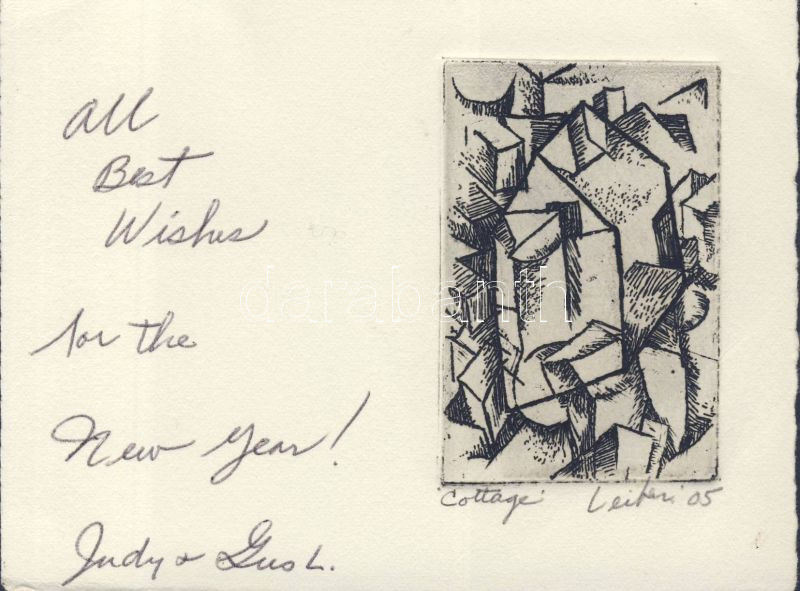 All
Best
Wishes
for the
New Year!
Judy & Gus L.
darabanth
Cottage Leiber '05